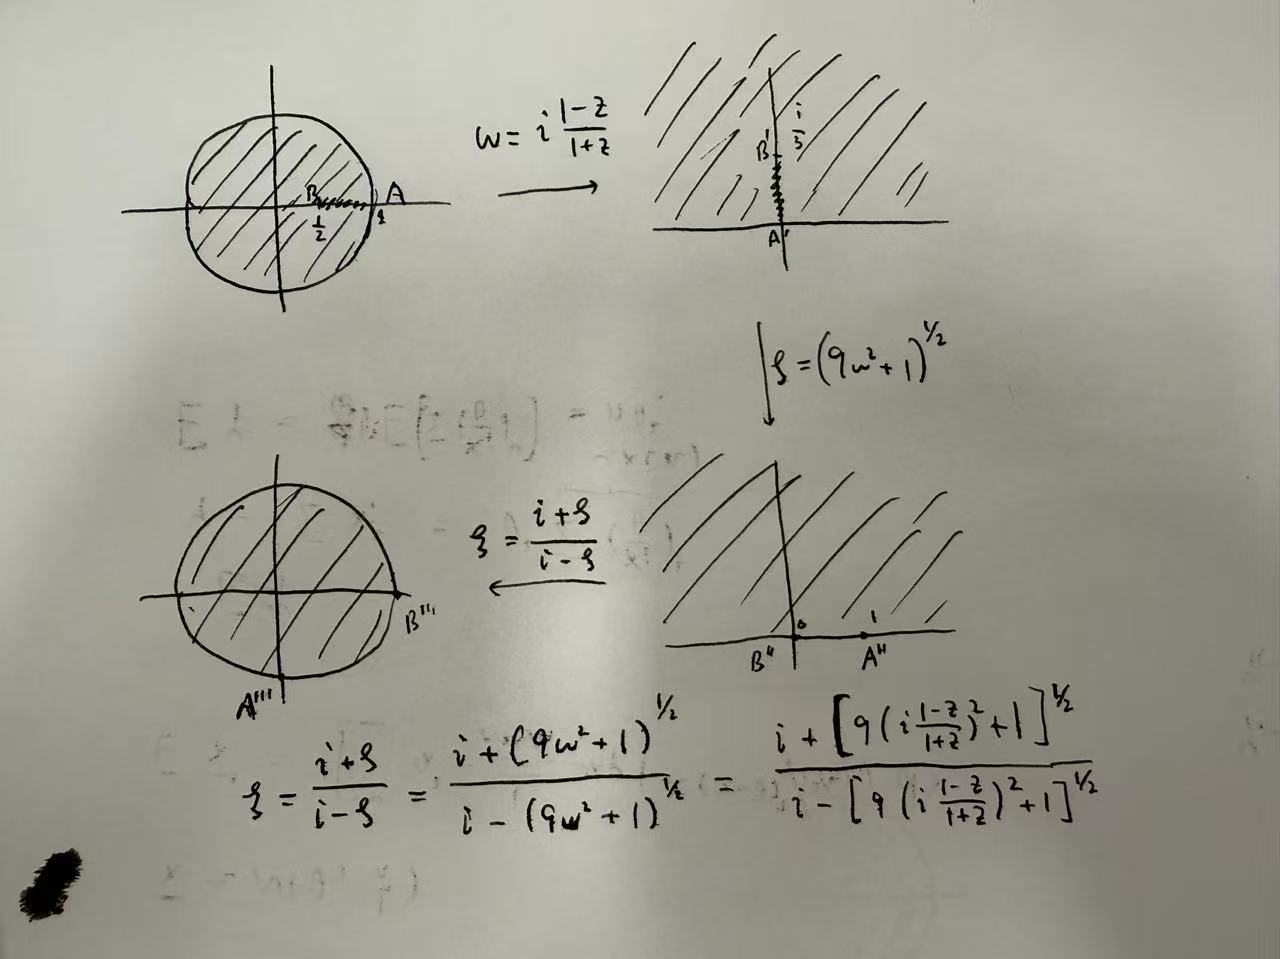 w = i \frac{1-z}{1+z}
B A
\frac{1}{2} 1
B' \frac{i}{3}
A'
ζ = (9w² + 1)^{1/2}
ξ = \frac{i+ζ}{i-ζ}
0 1
B'' A''
B'''
A'''
ξ = \frac{i+ζ}{i-ζ} = \frac{i+(9w²+1)^{1/2}}{i-(9w²+1)^{1/2}} = \frac{i+[9(i\frac{1-z}{1+z})²+1]^{1/2}}{i-[9(i\frac{1-z}{1+z})²+1]^{1/2}}